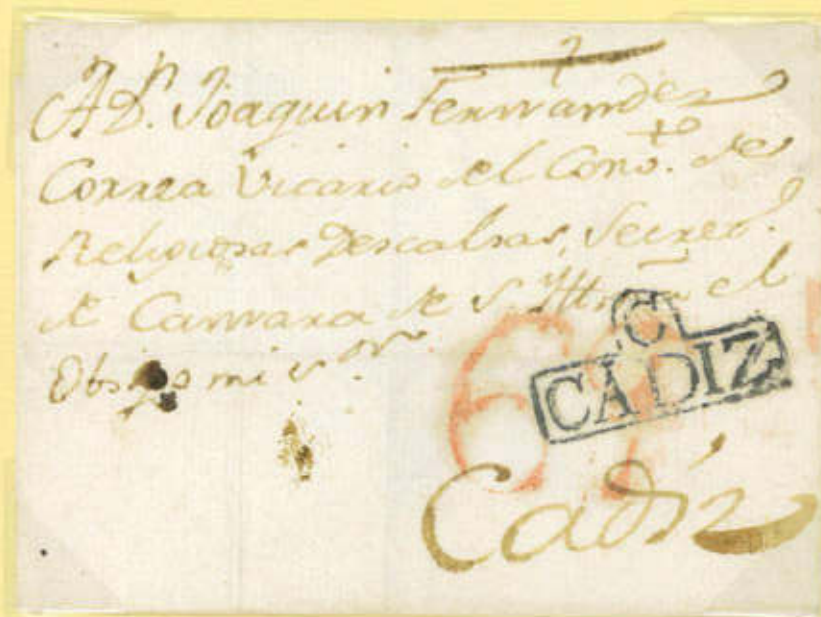 A Dn. Joaquin Fernandez
Correa Vicario del Convto. de
Religiosas Descalsas, Secret.
de Camara de S. Illma el
Obispo mi sor.
C
CADIZ
6
Cadiz